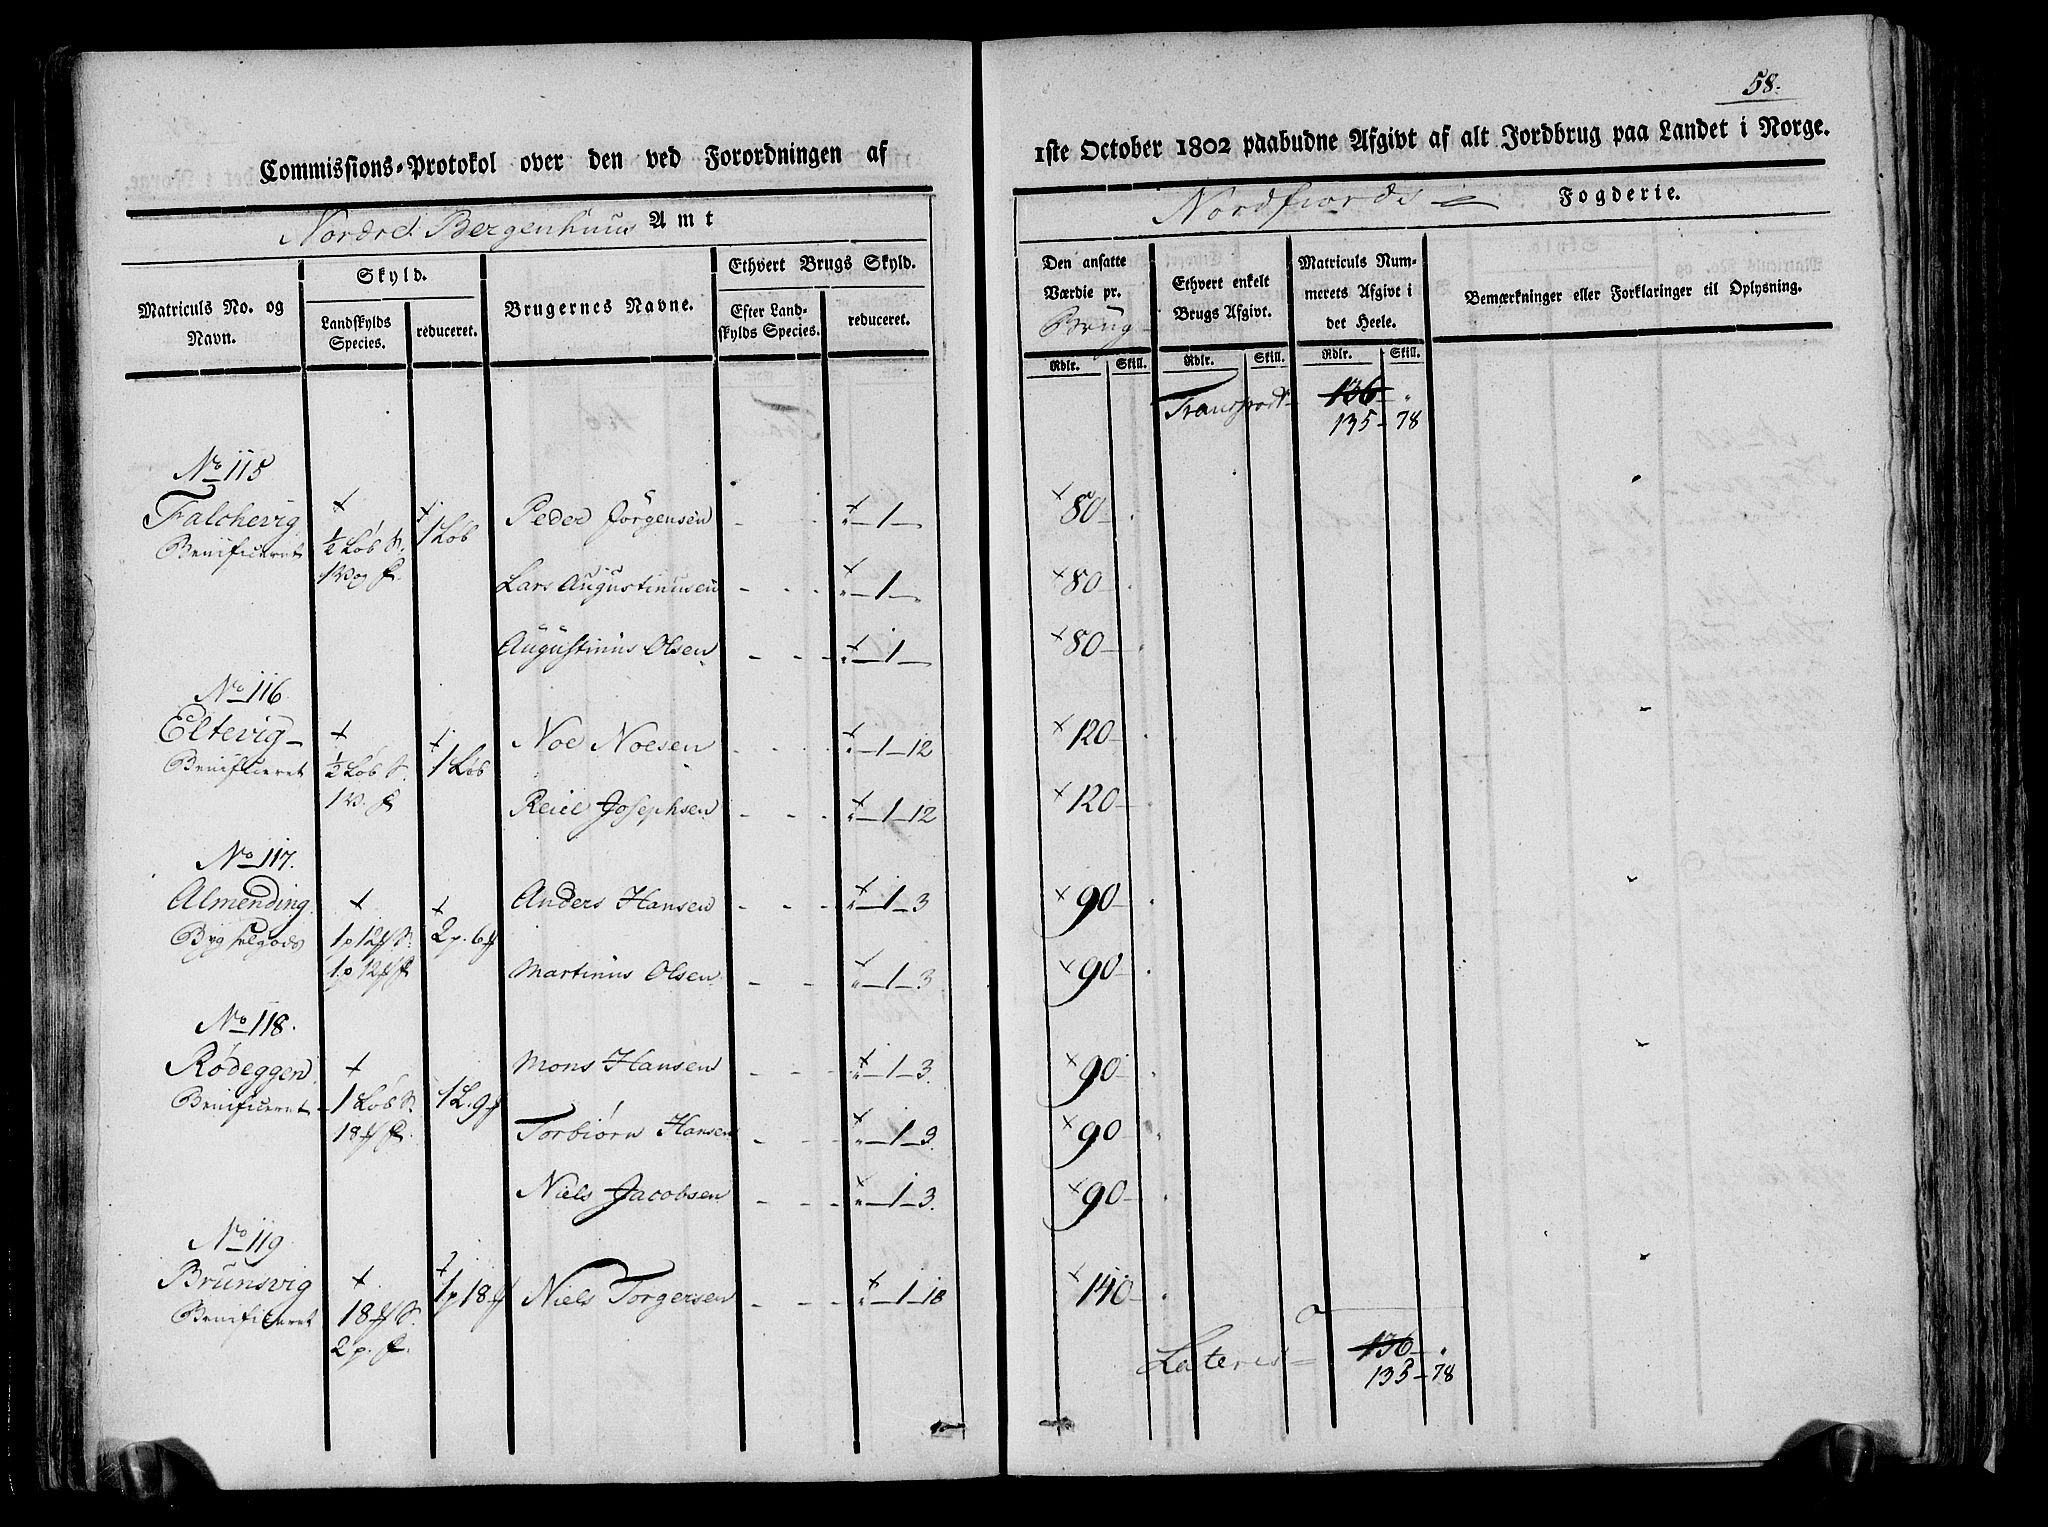 58.
Commissions-Protokol over den ved Forordningen af
1ste October 1802 paabudne Afgivt af alt Jordbrug paa Landet i Norge.
Nordre Bergenhuus Amt
Nordfiords Fogderie.
Matriculs No. og Navn.
Skyld.
Landskylds Species.
reduceret.
Brugernes Navne.
Ethvert Brugs Skyld.
Efter Landskylds Species.
reduceret.
Den ansatte Værdie pr. Brug
Rdlr. Skill.
Ethvert enkelt Brugs Afgivt.
Rdlr. Skill.
Matriculs Nummerets Afgivt i det Heele.
Rdlr. Skill.
Bemærkninger eller Forklaringer til Oplysning.
Transport 136 "
135 - 78
No 115
Falchevig + + 1 Løb Peder Jørgensen - - - + " - 1 - + 80 - .
Benificeret ½ Løb S.
1 Vog f. Lars Augustinusen - - - + " - 1 - + 80 - .
Augustinus Olsen - - - + " - 1 - + 80 - .
No 116.
Eltevig + + 1 Løb Noe Noesen - - - + " - 1 - 12 + 120 - .
Benificeret ½ Løb S.
1 V. f Reiel Josephsen - - - + " - 1 - 12 + 120 - .
No 117.
Almending + + 2 p. 6 Anders Hansen - - - + " - 1 - 3 + 90 - .
Bygselgods 1 p 12 S.
1 p 12 f Martinus Olsen - - - + " - 1 - 3 + 90 - .
No 118.
Rødeggen + 1 L. 9 Mons Hansen - - - + " - 1 - 3. + 90 - .
Benificeret 1 Løb S.
18 f. Torbiørn Hansen - - - + " - 1 - 3. + 90 - .
Niels Jacobsen - - - + " - 1 - 3. + 90 - .
No 119
Brunsvig + + 1 p 18 Niels Torgersen - - - + " - 1 - 18 + 140 - .
Benificeret 18 S.
2 p. f.
Lateris 136 - "
135 - 78